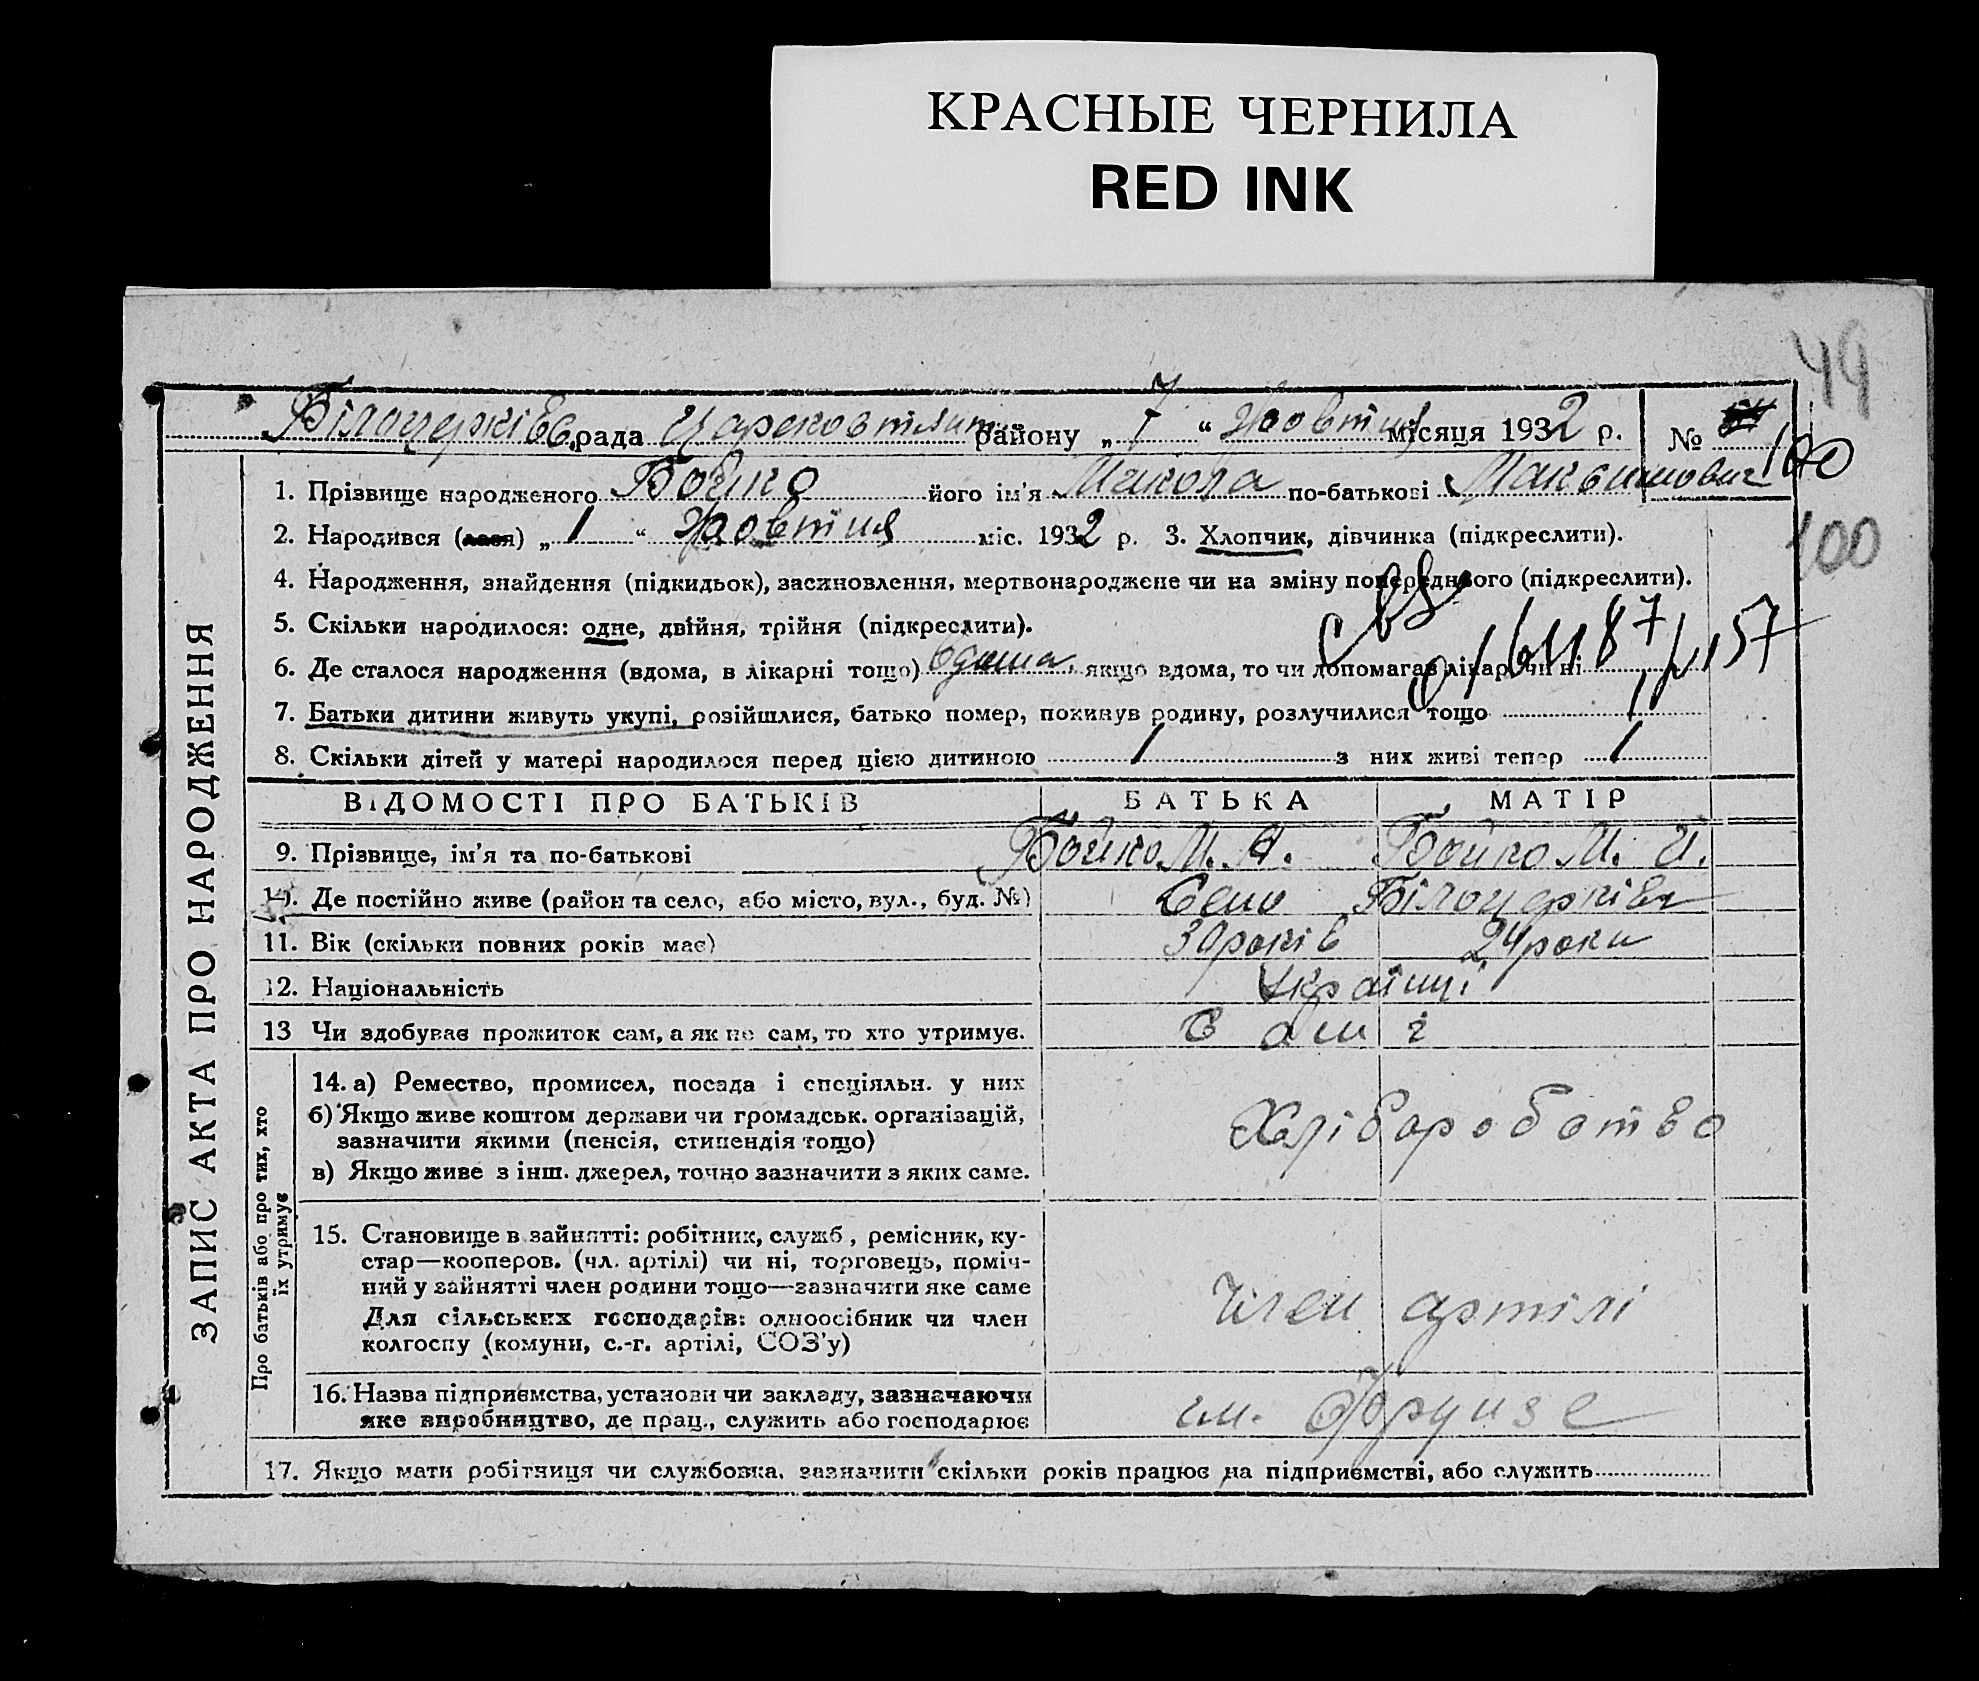 КРАСНЫЕ ЧЕРНИЛА
RED INK
49
Білоцерківс. рада району „ 7 “ Жовтня місяця 1932 р. №
100
1. Прізвище народженого Бойко його ім'я Микола по-батькові Максимович
2. Народився (лася) „ 1 “ Жовтня міс. 1932 р. 3. Хлопчик, дівчинка (підкреслити).
100
4. Народження, знайдення (підкидьок), засиновлення, мертвонароджене чи на зміну попереднього (підкреслити).
5. Скільки народилося: одне, двійня, трійня (підкреслити).
6. Де сталося народження (вдома, в лікарні тощо) вдома, якщо вдома, то чи допомагав лікар чи ні
7. Батьки дитини живуть укупі, розійшлися, батько помер, покинув родину, розлучилися тощо
8. Скільки дітей у матері народилося перед цією дитиною 1 з них живі тепер 1
ЗАПИС АКТА ПРО НАРОДЖЕННЯ
ВІДОМОСТІ ПРО БАТЬКІВ БАТЬКА МАТІР
9. Прізвище, ім'я та по-батькові Бойко М. А. Бойко М. И.
10. Де постійно живе (район та село, або місто, вул., буд. №) Село Білоцерківка
11. Вік (скільки повних років має) 30 років 24 роки
12. Національність Українці
13 Чи здобуває прожиток сам, а як не сам, то хто утримує. Самі
Про батьків або про тих, хто
їх утримує
14. а) Ремество, промисел, посада і спеціяльн. у них
б) Якщо живе коштом держави чи громадськ. організацій,
зазначити якими (пенсія, стипендія тощо)
в) Якщо живе з інш. джерел, точно зазначити з яких саме.
Хліборобство
15. Становище в зайнятті: робітник, служб., ремісник, ку-
стар—кооперов. (чл. артілі) чи ні, торговець, поміч-
ний у зайнятті член родини тощо—зазначити яке саме
Для сільських господарів: одноосібник чи член
колгоспу (комуни, с.-г. артілі, СОЗ'у)
Член артілі
16. Назва підприємства, установи чи закладу, зазначаючи
яке виробництво, де прац., служить або господарює
ім. Фрунзе
17. Якщо мати робітниця чи службовка, зазначити скільки років працює на підприємстві, або служить